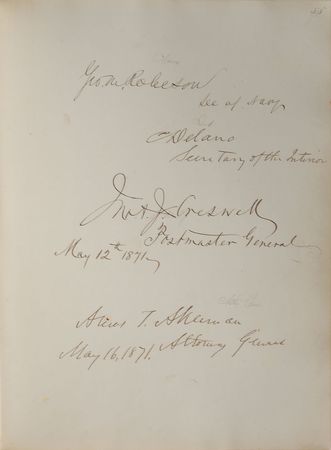 55
Geo. M. Robeson
Sec of Navy
C Delano
Secretary of the Interior
Jno. A. J. Creswell
Postmaster General
May 12th 1871
Amos T. Akerman
May 16, 1871. Attorney General